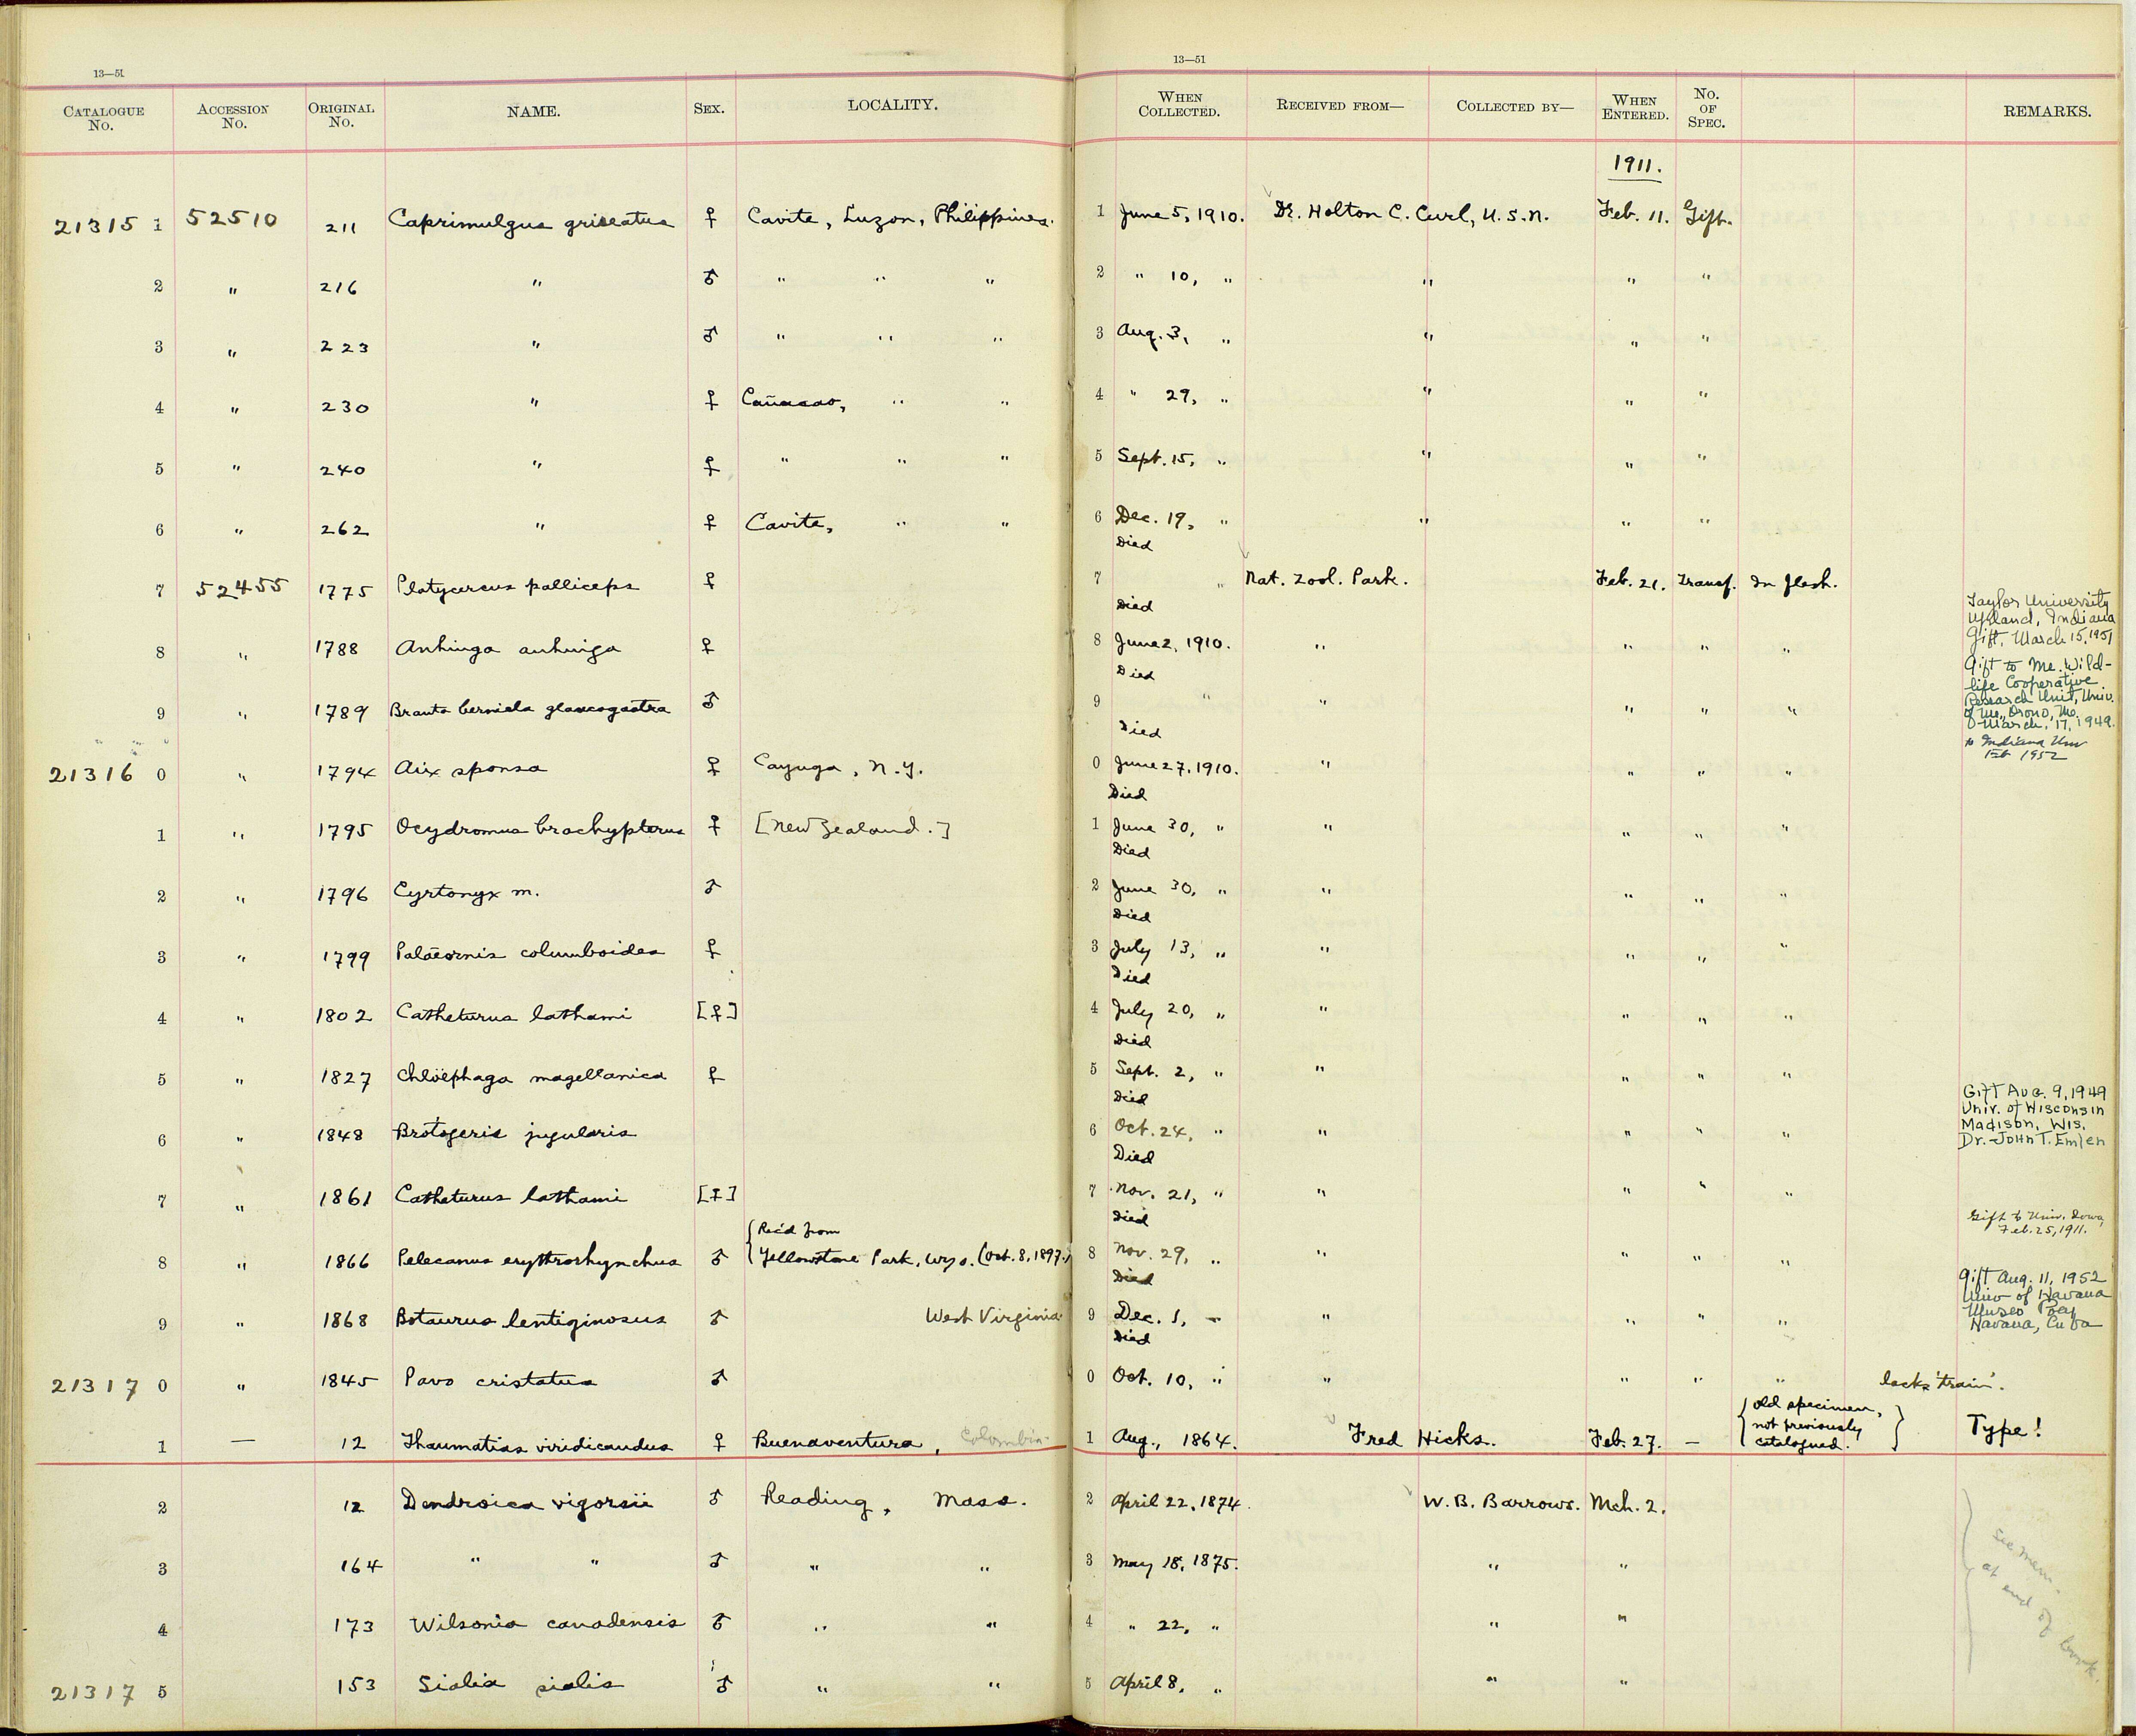 13—51
13—51
CATALOGUE No. ACCESSION No. ORIGINAL No. NAME. SEX. LOCALITY. WHEN COLLECTED. RECEIVED FROM— COLLECTED BY— WHEN ENTERED. No. OF SPEC. REMARKS.
1911.
21315 1 52510 211 Caprimulgus griseatus ♀ Cavite, Luzon, Philippines. 1 June 5, 1910. Dr. Holton C. Curl, U.S.N. Feb. 11. Gift.
2 " 216 " ♂ " " " 2 " 10, " " " "
3 " 223 " ♂ " " " 3 Aug. 3, " " " "
4 " 230 " ♀ Cañacao, " " 4 " 29, " " " "
5 " 240 " ♀ " " " 5 Sept. 15, " " " "
6 " 262 " ♀ Cavite, " " 6 Dec. 19, " " " "
Died
7 52455 1775 Platycercus palliceps ♀ 7 " Nat. Zool. Park. Feb. 21. Transf. In flesh.
Died
8 " 1788 Anhinga anhinga ♀ 8 June 2, 1910. " " " " Taylor University
Upland, Indiana
Gift, March 15, 1951
Died
9 " 1789 Branta bernicla glaucogastra ♂ 9 " " " " " Gift to Me. Wild-
life Cooperative
Research Unit, Univ.
of Me., Orono, Me.
March, 17, 1949.
Died
21316 0 " 1794 Aix sponsa ♀ Cayuga, N.Y. 0 June 27, 1910. " " " " to Indiana Univ
Feb 1952
Died
1 " 1795 Ocydromus brachypterus ♀ [New Zealand.] 1 June 30, " " " " "
Died
2 " 1796 Cyrtonyx m. ♂ 2 June 30, " " " " "
Died
3 " 1799 Palæornis columboides ♀ 3 July 13, " " " " "
Died
4 " 1802 Catheturus lathami [♀] 4 July 20, " " " " "
Died
5 " 1827 Chloëphaga magellanica ♀ 5 Sept. 2, " " " " "
Died
6 " 1848 Brotogeris jugularis 6 Oct. 24, " " " " " Gift Aug. 9, 1949
Univ. of Wisconsin
Madison, Wis.
Dr. John T. Emlen
Died
7 " 1861 Catheturus lathami [♀] 7 Nov. 21, " " " " "
Died
8 " 1866 Pelecanus erythrorhynchus ♂ Rec'd from
Yellowstone Park, Wyo. (Oct. 8, 1897.) 8 Nov. 29, " " " " " Gift to Univ. Iowa,
Feb. 25, 1911.
Died
9 " 1868 Botaurus lentiginosus ♂ West Virginia 9 Dec. 1, " " " " " Gift Aug. 11, 1952
Univ of Havana
Museo Poey
Havana, Cuba
Died
21317 0 " 1845 Pavo cristatus ♂ 0 Oct. 10, " " " " " lacks 'train'.
1 — 12 Thaumatias viridicaudus ♀ Buenaventura, Colombia. 1 Aug., 1864. Fred Hicks. Feb. 27. — old specimen,
not previously
catalogued. Type!
2 12 Dendroica vigorsii ♂ Reading, Mass. 2 April 22, 1874. W. B. Barrows. Mch. 2.
3 164 " " ♂ " " 3 May 18, 1875. " "
4 173 Wilsonia canadensis ♂ " " 4 " 22, " " "
21317 5 153 Sialia sialis ♂ " " 5 April 8, " " "
See mem.
at end of book.